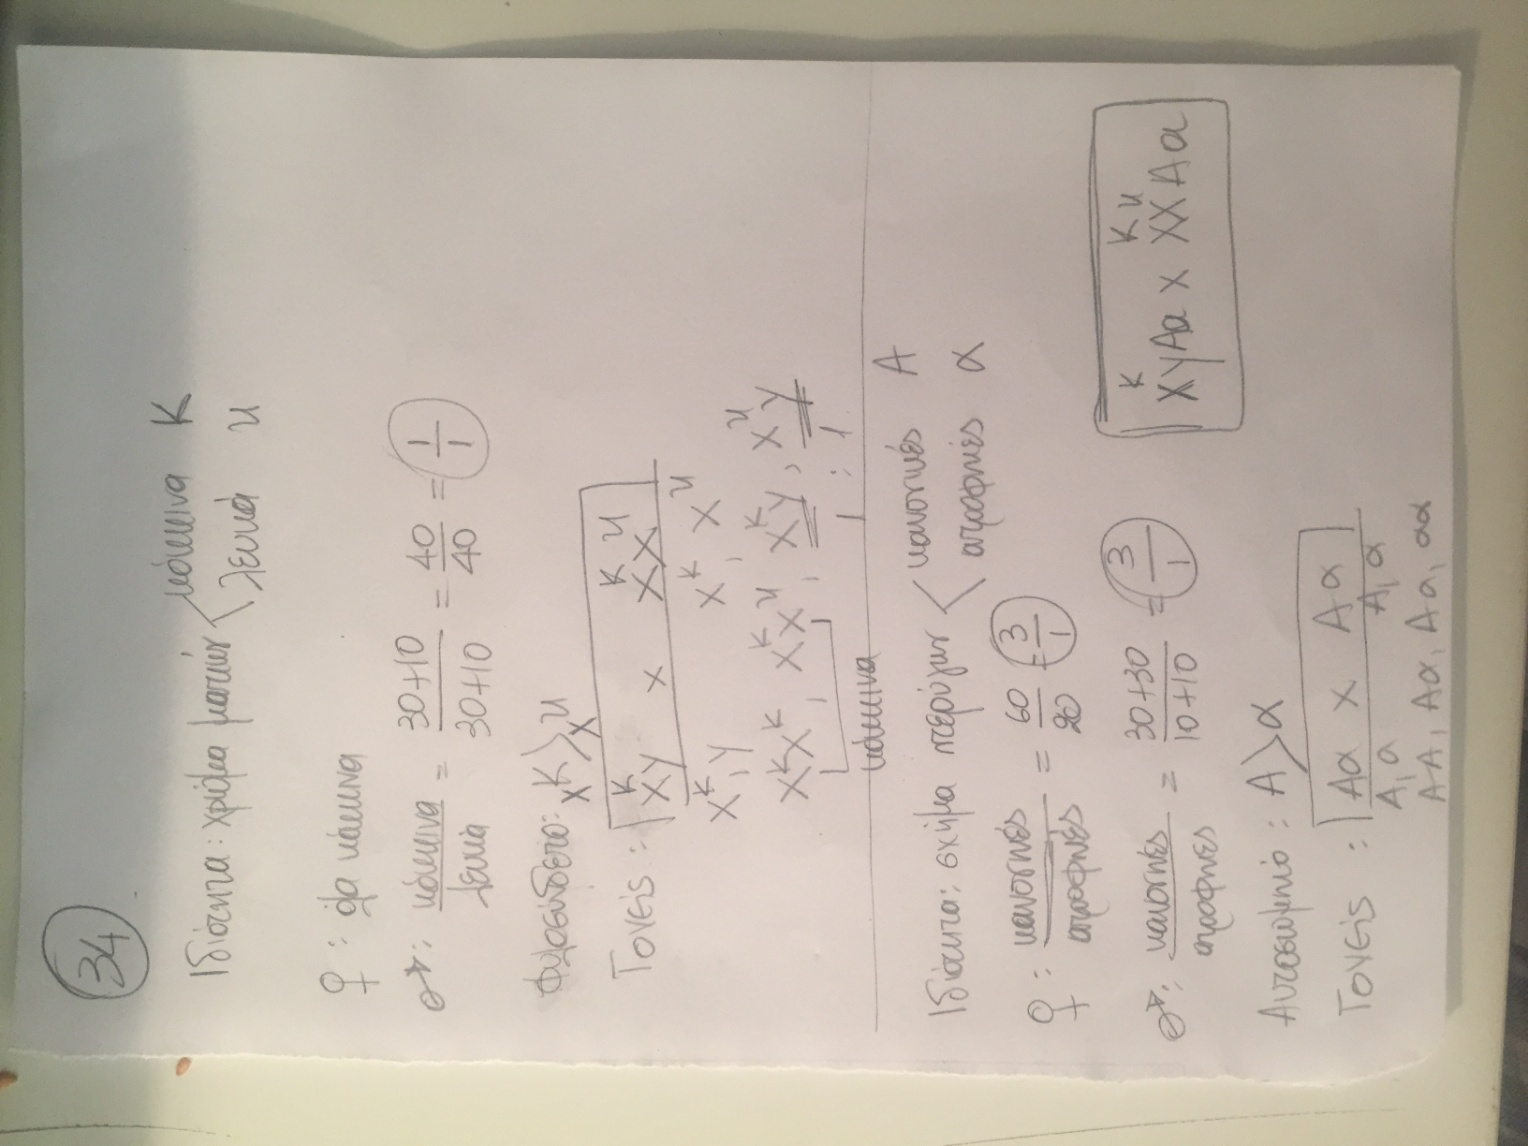 34
Ιδιότητα: χρώμα ματιών < κόκκινα Κ
λευκά κ
♀: όλα κόκκινα
♂: κόκκινα/λευκά = 30+10/30+10 = 40/40 = 1/1
Φυλοσύνδετο: Xᴷ > Xᵏ
Γονείς: XᴷY x XᴷXᵏ
Xᴷ, Y Xᴷ, Xᵏ
XᴷXᴷ, XᴷXᵏ, XᴷY, XᵏY
κόκκινα 1 : 1
Ιδιότητα: σχήμα πτερύγων < κανονικές Α
ατροφικές α
♀: κανονικές/ατροφικές = 60/20 = 3/1
♂: κανονικές/ατροφικές = 30+30/10+10 = 3/1
XᴷYAα x XᴷXᵏAα
Αυτοσωμικό: Α > α
Γονείς: Αα x Αα
Α, α Α, α
ΑΑ, Αα, Αα, αα